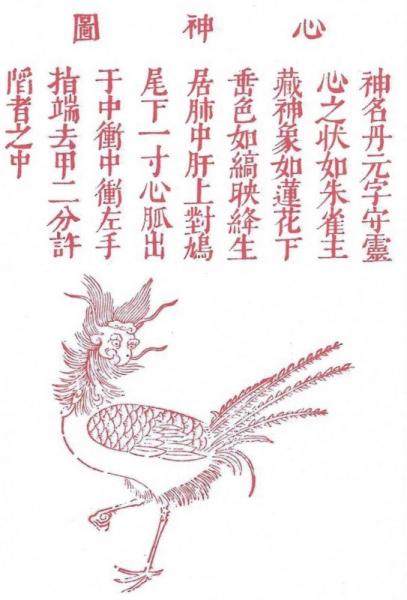 心神圖
神名丹元字守靈
心之状如朱雀主
藏神象如蓮花下
垂色如縞映絳生
居肺中肝上對鳩
尾下一寸心脈出
于中衝中衝左手
指端去甲二分許
陷者之中